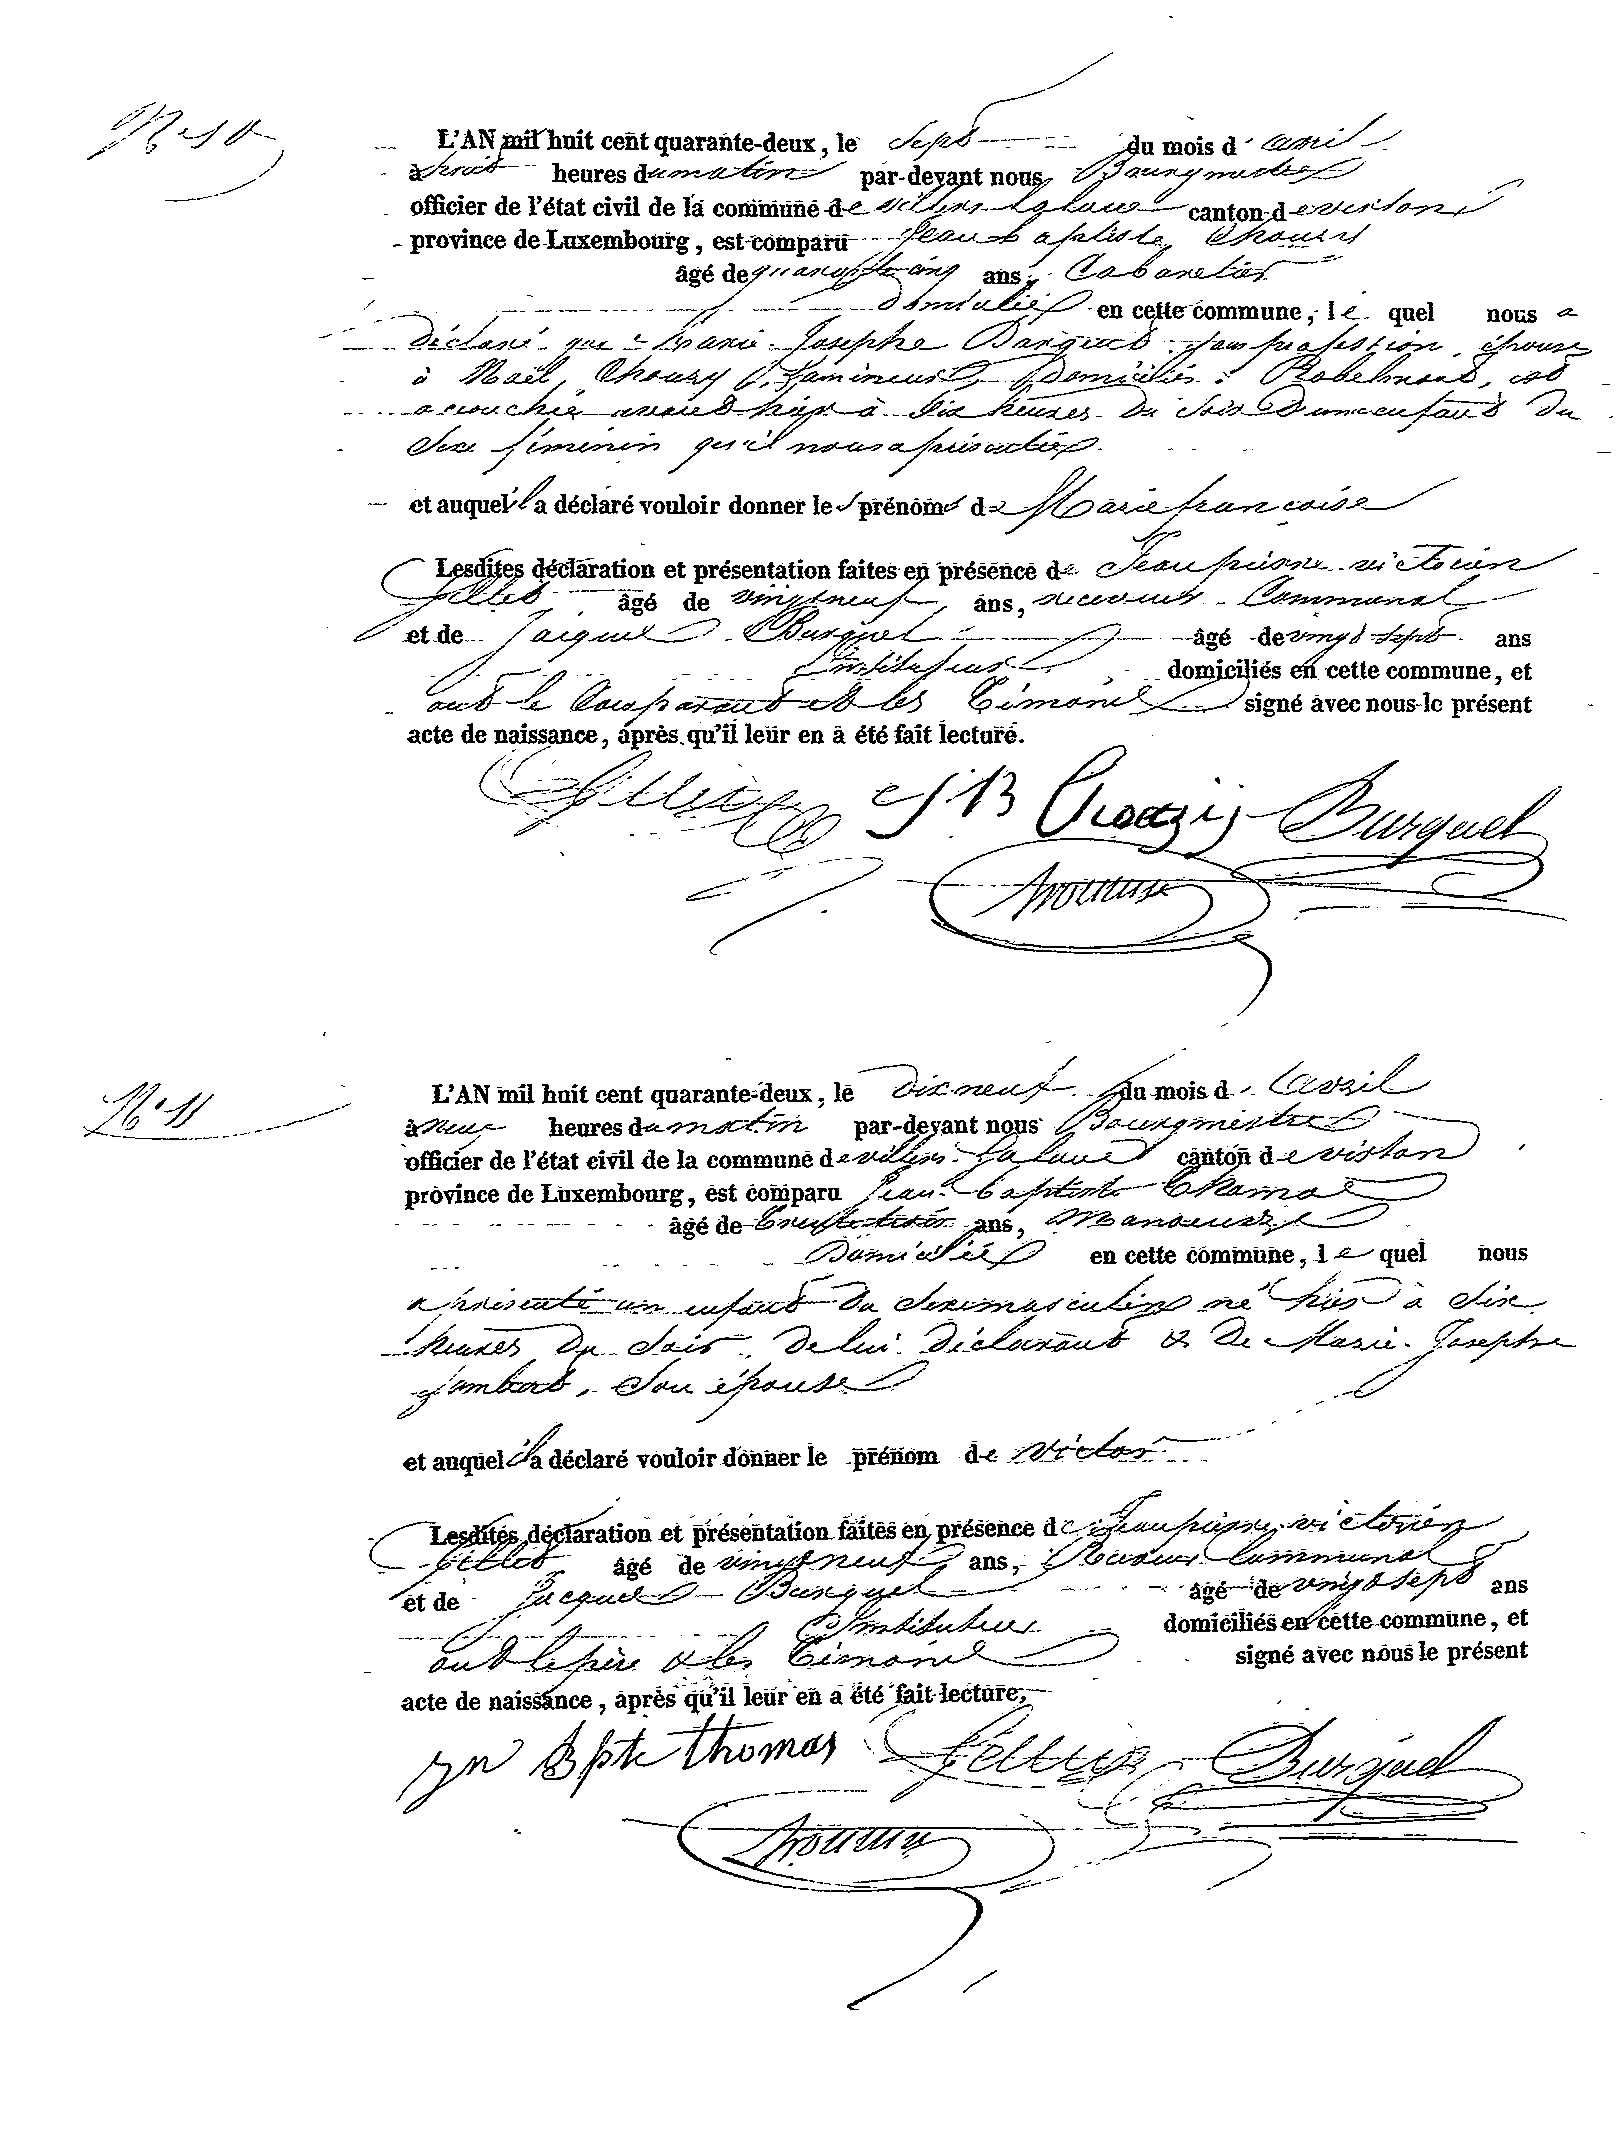 N° 10
L'AN mil huit cent quarante-deux, le sept du mois d'avril
à huit heures du matin par-devant nous Bourgmestre
officier de l'état civil de la commune de villers la loue canton de virton
province de Luxembourg, est comparu Jean baptiste
âgé de quarante cinq ans, Cabaretier
domicilié en cette commune, le quel nous a
déclaré que Marie Josephe sans profession, épouse
à Noël, Domicilié à Robelmont, est
accouchée avant hier à dix heures du soir D'un enfant du
sexe féminin qu'il nous a présenté
et auquel il a déclaré vouloir donner les prénoms de Marie françoise
Lesdites déclaration et présentation faites en présence de Jean pierre victorien
Gillet âgé de vingt neuf ans, receveur Communal
et de Jacques Burquel âgé de vingt sept ans
Instituteur domiciliés en cette commune, et
ont le Comparant et les Témoins signé avec nous le présent
acte de naissance, après qu'il leur en a été fait lecture.
JB Burquel
N° 11
L'AN mil huit cent quarante-deux, le dix neuf du mois d'avril
à neuf heures du matin par-devant nous Bourgmestre
officier de l'état civil de la commune de villers la loue canton de virton
province de Luxembourg, est comparu Jean baptiste Thomas
âgé de trente trois ans, Manoeuvre
Domicilié en cette commune, le quel nous
a présenté un enfant du sexe masculin né hier à six
heures du soir de lui déclarant & de Marie Josephe
son épouse
et auquel il a déclaré vouloir donner le prénom de victor
Lesdites déclaration et présentation faites en présence de Jean pierre victorien
Gillet âgé de vingt neuf ans, Receveur Communal
et de Jacques Burquel âgé de vingt sept ans
Instituteur domiciliés en cette commune, et
ont le père & les Témoins signé avec nous le présent
acte de naissance, après qu'il leur en a été fait lecture.
jn Bpte thomas Burquel